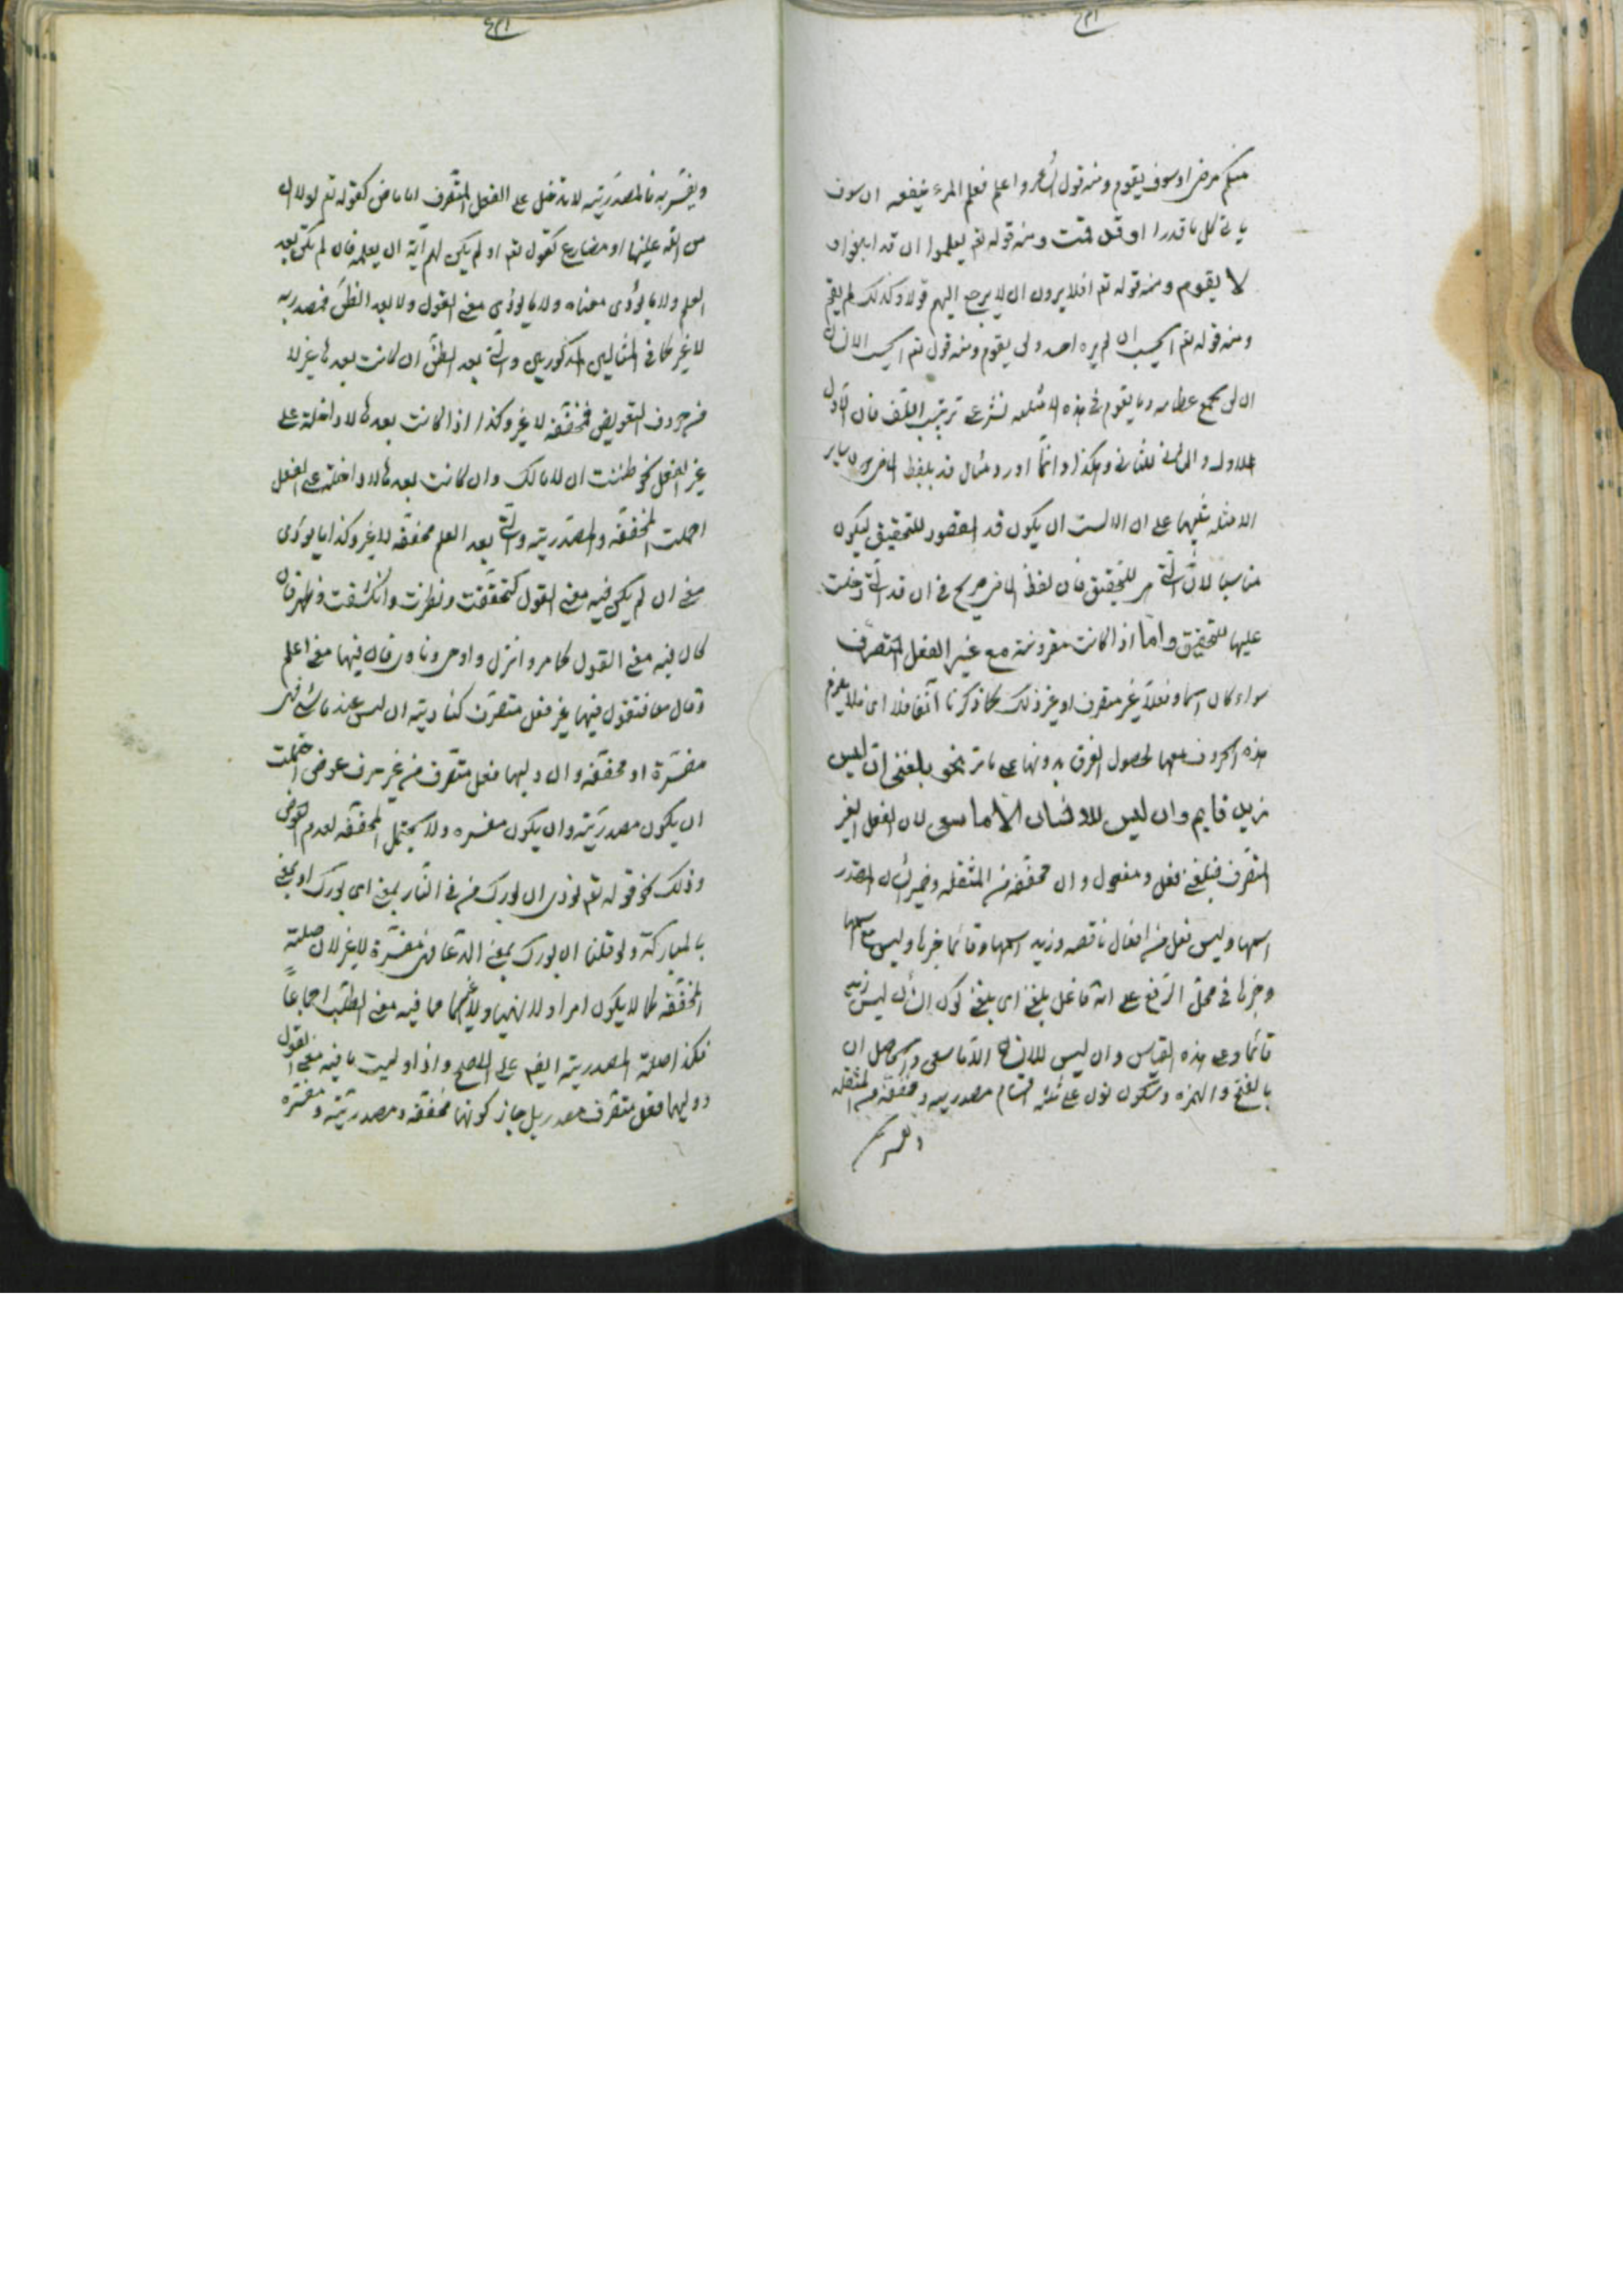 منكم مرضى او سوف يقوم ومنه قول الشاعر واعلم فعلم المرء ينفعه ان سوف
ياتي كل ما قدرا او قد قمت ومنه قوله تعم ليعلموا ان قد ابلغوا او
لا يقوم ومنه قوله تعم افلا يرون ان لا يرجع اليهم قولا وكذلك لم يقم
ومنه قوله تعم ايحسب ان لم يره احد ولن يقوم ومنه قوله تعم ايحسب الانسان
ان لن نجمع عظامه وما يقوم في هذه الامثلة نشر على ترتيب اللف فان الاول
للاول والثاني للثاني وهكذا وانما اورد مثال قد بلفظ الماضي دون ساير
الامثله تنبيها على ان الانسب ان يكون قد المقصود للتحقيق ليكون
مناسبا لان التي هي للتحقيق فان لفظ الماضي صريح في ان قد التي دخلت
عليها للتحقيق واما اذا كانت مقرونة مع غير الفعل المتصرف
سواء كان اسما او فعلا غير متصرف او غير ذلك كما ذكرنا آنفا فلا اي فلا يلزم
هذه الحروف معها لحصول الفرق بدونها على ما مر نحو بلغني ان ليس
زيد قايم وان ليس للانسان الا ما سعى لان الفعل الغير
المتصرف فبلغني فعل ومفعول وان مخففة من المثقله وضمير الشان المقدر
اسمها وليس فعل من افعال ناقصه وزيد اسمها وقائما خبرها وليس مع اسمها
وخبرها في محل الرفع على انه فاعل بلغني اي بلغني كون الشان ليس زيد
قائما وعلى هذه القياس وان ليس للانسان الا ما سعى والحاصل ان
بالفتح والهمزه وسكون نون على ثلثه اقسام مصدريه ومخففة من المثقله
ومفسره
ويفسر به فالمصدرية لا تدخل على الفعل المتصرف اما ماض كقوله تعم لولا ان
من الله علينا او مضارع كقوله تعم او لم يكن لهم آية ان يعلمه فان لم يكن بعد
العلم ولا ما يؤدى معناه ولا ما يؤدى معنى القول ولا بعد الظن فمصدريه
لا غير كما في المثالين المذكورين والتي بعد الظن ان كانت بعدها غير لا
من حروف التعويض فمخففة لا غير وكذا اذا كانت بعدها لا داخلة على
غير الفعل نحو ظننت ان لا مالك وان كانت بعدها لا داخلة على الفعل
احتملت المخففة والمصدرية والتي بعد العلم مخففة لا غير وكذا ما يؤدى
معنى ان لم يكن فيه معنى القول كتحققت ونظرت وانكشفت وظهر فان
كان فيه معنى القول كامر وانزل واوحى ونادى فان فيها معنى اعلم
وقال معا فتقول فيها غير فعل متصرف كناديته ان ليس عندنا شئ فهى
مفسرة او مخففة وان وليها فعل متصرف من غير حرف عوض احتملت
ان يكون مصدرية وان يكون مفسره ولا يحتمل المخففة لعدم العوض
وذلك نحو قوله تعم نودى ان بورك من في النار بمعنى اي بورك او بمعنى
بالمباركة ولو قلنا ان بورك بمعنى الدعا فهى مفسرة لا غير لان صلة
المخففة كما لا يكون امرا ولا نهيا ولا غيرهما مما فيه معنى الطلب اجماعا
فكذا صلة المصدرية ايضم على الاصح واذا وليت ما فيه معنى القول
ووليها فعل متصرف مصدر بلا جاز كونها مخففة ومصدرية ومفسره